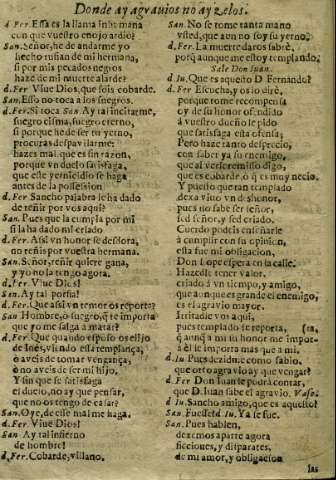 Donde ay agrauios no ay zelos.
d. Fer. Essa es la llama inhumana
con que vuestro enojo ardio?
San. Señor, he de andarme yo
hecho rufian de mi hermana,
si por mis pecados negros
haze de mi muerte alarde?
d. Fer Viue Dios, que sois cobarde.
San. Esso no toca a los suegros.
d. Fer. Si toca San Ay tal
suegro cisma, suegro eterno,
si porque he de ser tu yerno,
procuras despavilarme:
hazes mal, que es sin razon,
porque vn duelo satisfaga,
que este yernicidio se haga
antes de la possession
d. Fer Sancho palabra le ha dado
de reñir por vos aqui?
San. Pues que la cumpla por mi
si la ha dado mi criado
d. Fer. Assi vn honor se desdora,
no reñis por vuestra hermana.
San. Señor, reñir quiere gana,
y yo no la tengo agora.
d. Fer. Viue Dios!
San. Ay tal porfia!
d. Fer. Que assi vn temor os reporta?
San Hombre, ò suegro, q̃ te importa
que yo me salga a matar?
d. Fer. Que quando esposo os elijo
de Ines, viendo essa templança,
ò aveis de tomar vengança,
ò no aveis de ser mi hijo,
Y sin que se satisfaga
el duelo, no ay que pensar,
que no os tengo de casar?
San. Oye, de esse mal me haga.
d. Fer. Viue Dios!
San Ay tal infierno
de hombre!
d. Fer. Cobarde, villano.
San. No se tome tanta mano
vsted, que aun no soy su yerno.
d. Fer. La muerte daros sabrè,
porq̃ aunque me estoy templando.
Sale Don Iuan.
d. Iu. Que es aquesto D. Fernando?
d. Fer Escucha, y os lo dirè,
porque tome recompensa
oy de su honor ofendido
à vuestro dueño le pido
que satisfaga esta ofensa;
Pero haze tanto desprecio,
con saber ya su enemigo,
que al ver sereno digo,
que es cobarde, ò q̃ es muy necio.
Y puesto que tan templado
dexa viuo vn deshonor,
pues no sabe ser señor,
sed señor, y sed criado.
Cuerdo podeis enseñarle
à cumplir con su opinion,
esta fue mi obligacion,
Don Lope espera en la calle.
Hazedle tener valor,
criado à vn tiempo, y amigo,
que aunque es grande el enemigo,
es el agravio mayor.
Irritadle vos aqui,
pues templado se reporta,
q̃ aunq̃ a mi su honor me impor-
à èl le importa mas que a mi.
d. Iu Pues dezidme como sabio,
que otro agravio ay que vengar?
d. Fer Don Iuan te podrà contar,
que D. Iuan sabe el agravio. Vase.
d Iu. Sancho amigo, que es aquesto?
San. Fuesse? d Iu. Ya se fue.
San. Pues hablen,
dexemos aparte agora
ficciones, y disparates,
de mi amor, y obligacion
las